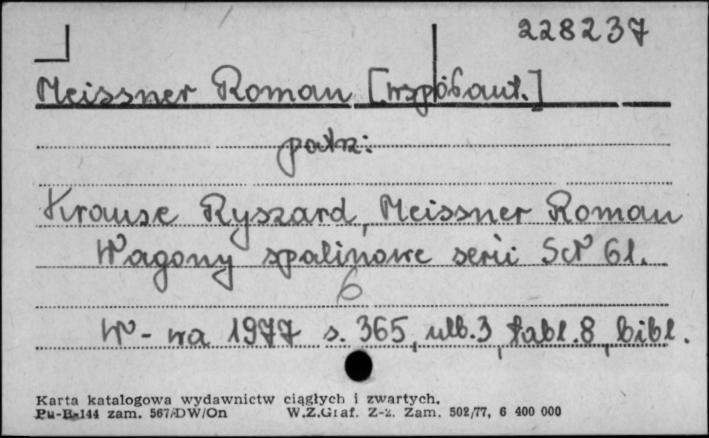 228237
Meissner Roman [współaut.]
patrz:
Krause Ryszard, Meissner Roman
Wagony spalinowe serii SN 61.
6
W-wa 1977 s. 365, ulb. 3, tabl. 8, bibl.
Karta katalogowa wydawnictw ciągłych i zwartych.
Pu-B-144 zam. 567/DW/On W.Z.Graf. Z-2. Zam. 502/77, 6 400 000